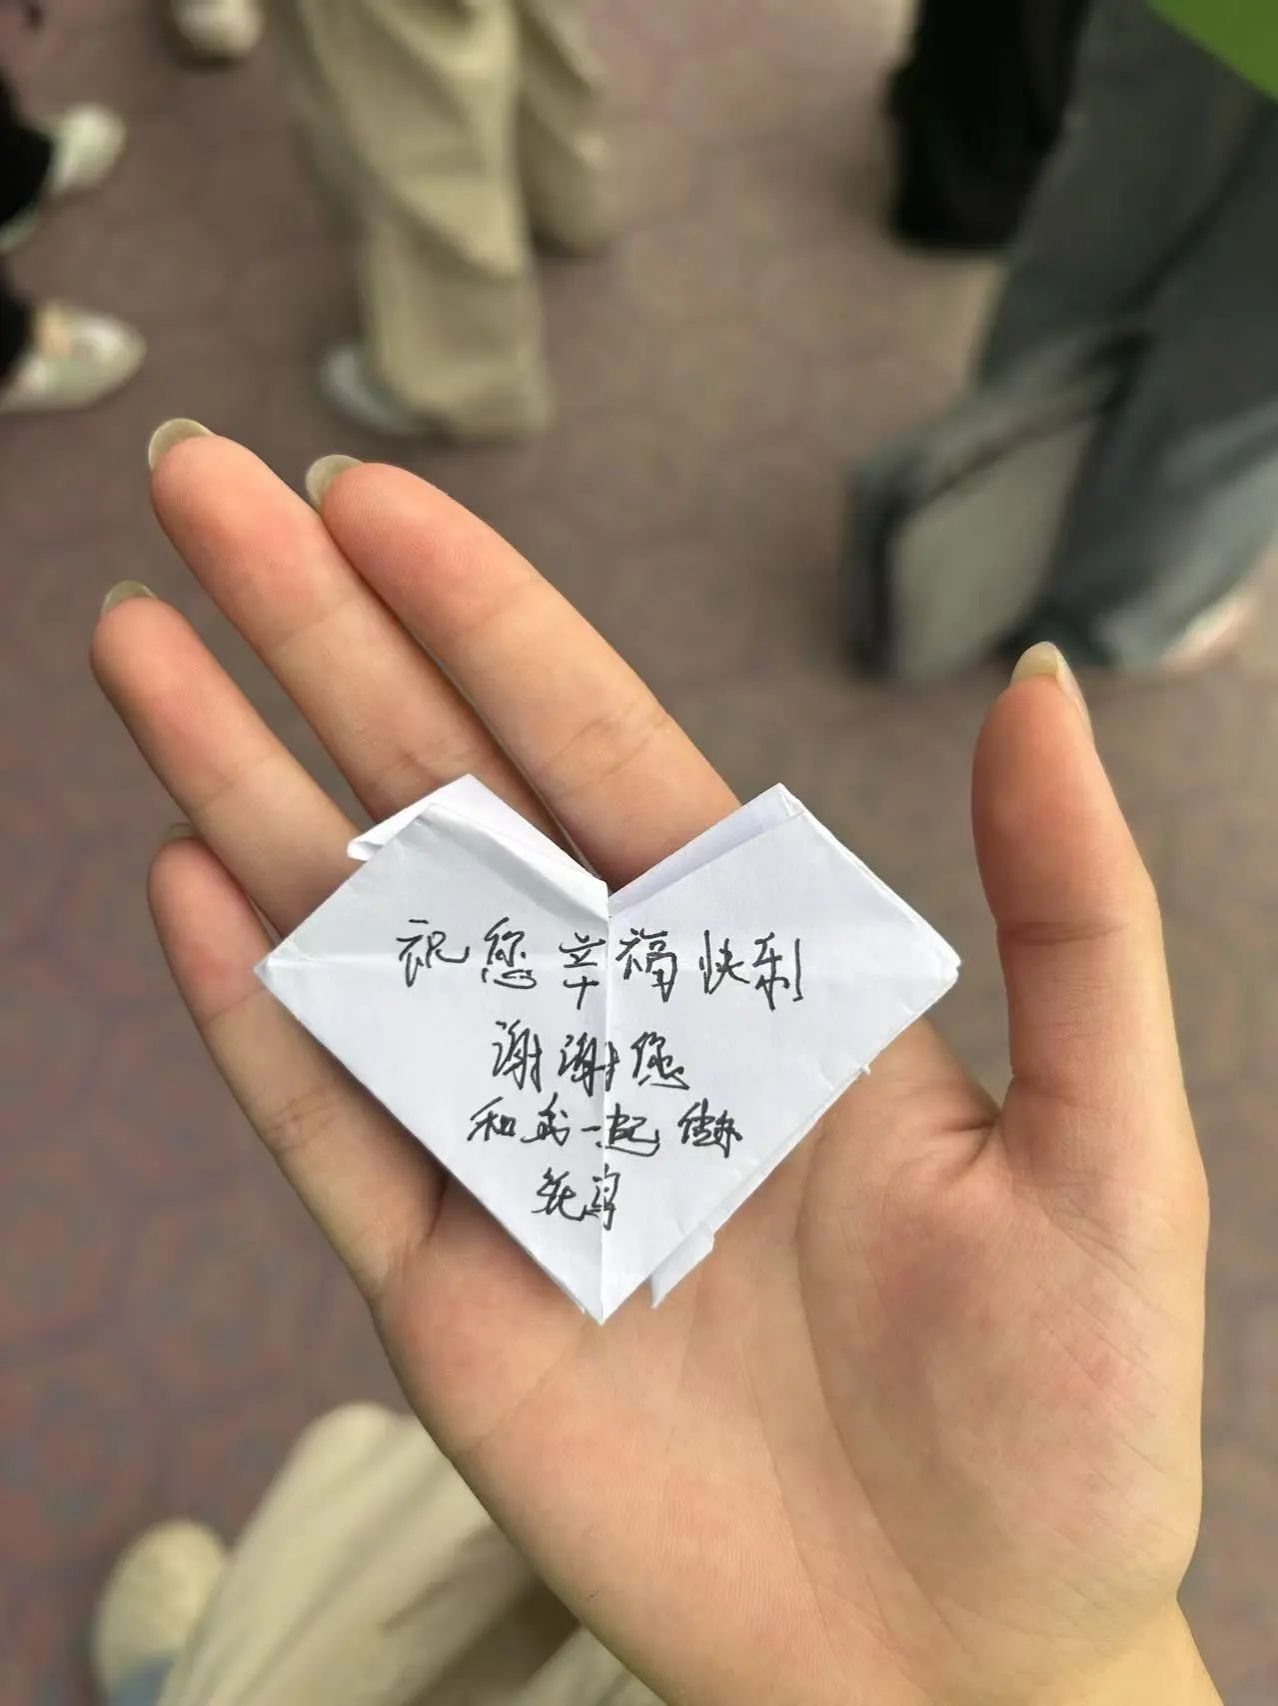 祝您幸福快乐
谢谢您
和我一起做
纸鸟